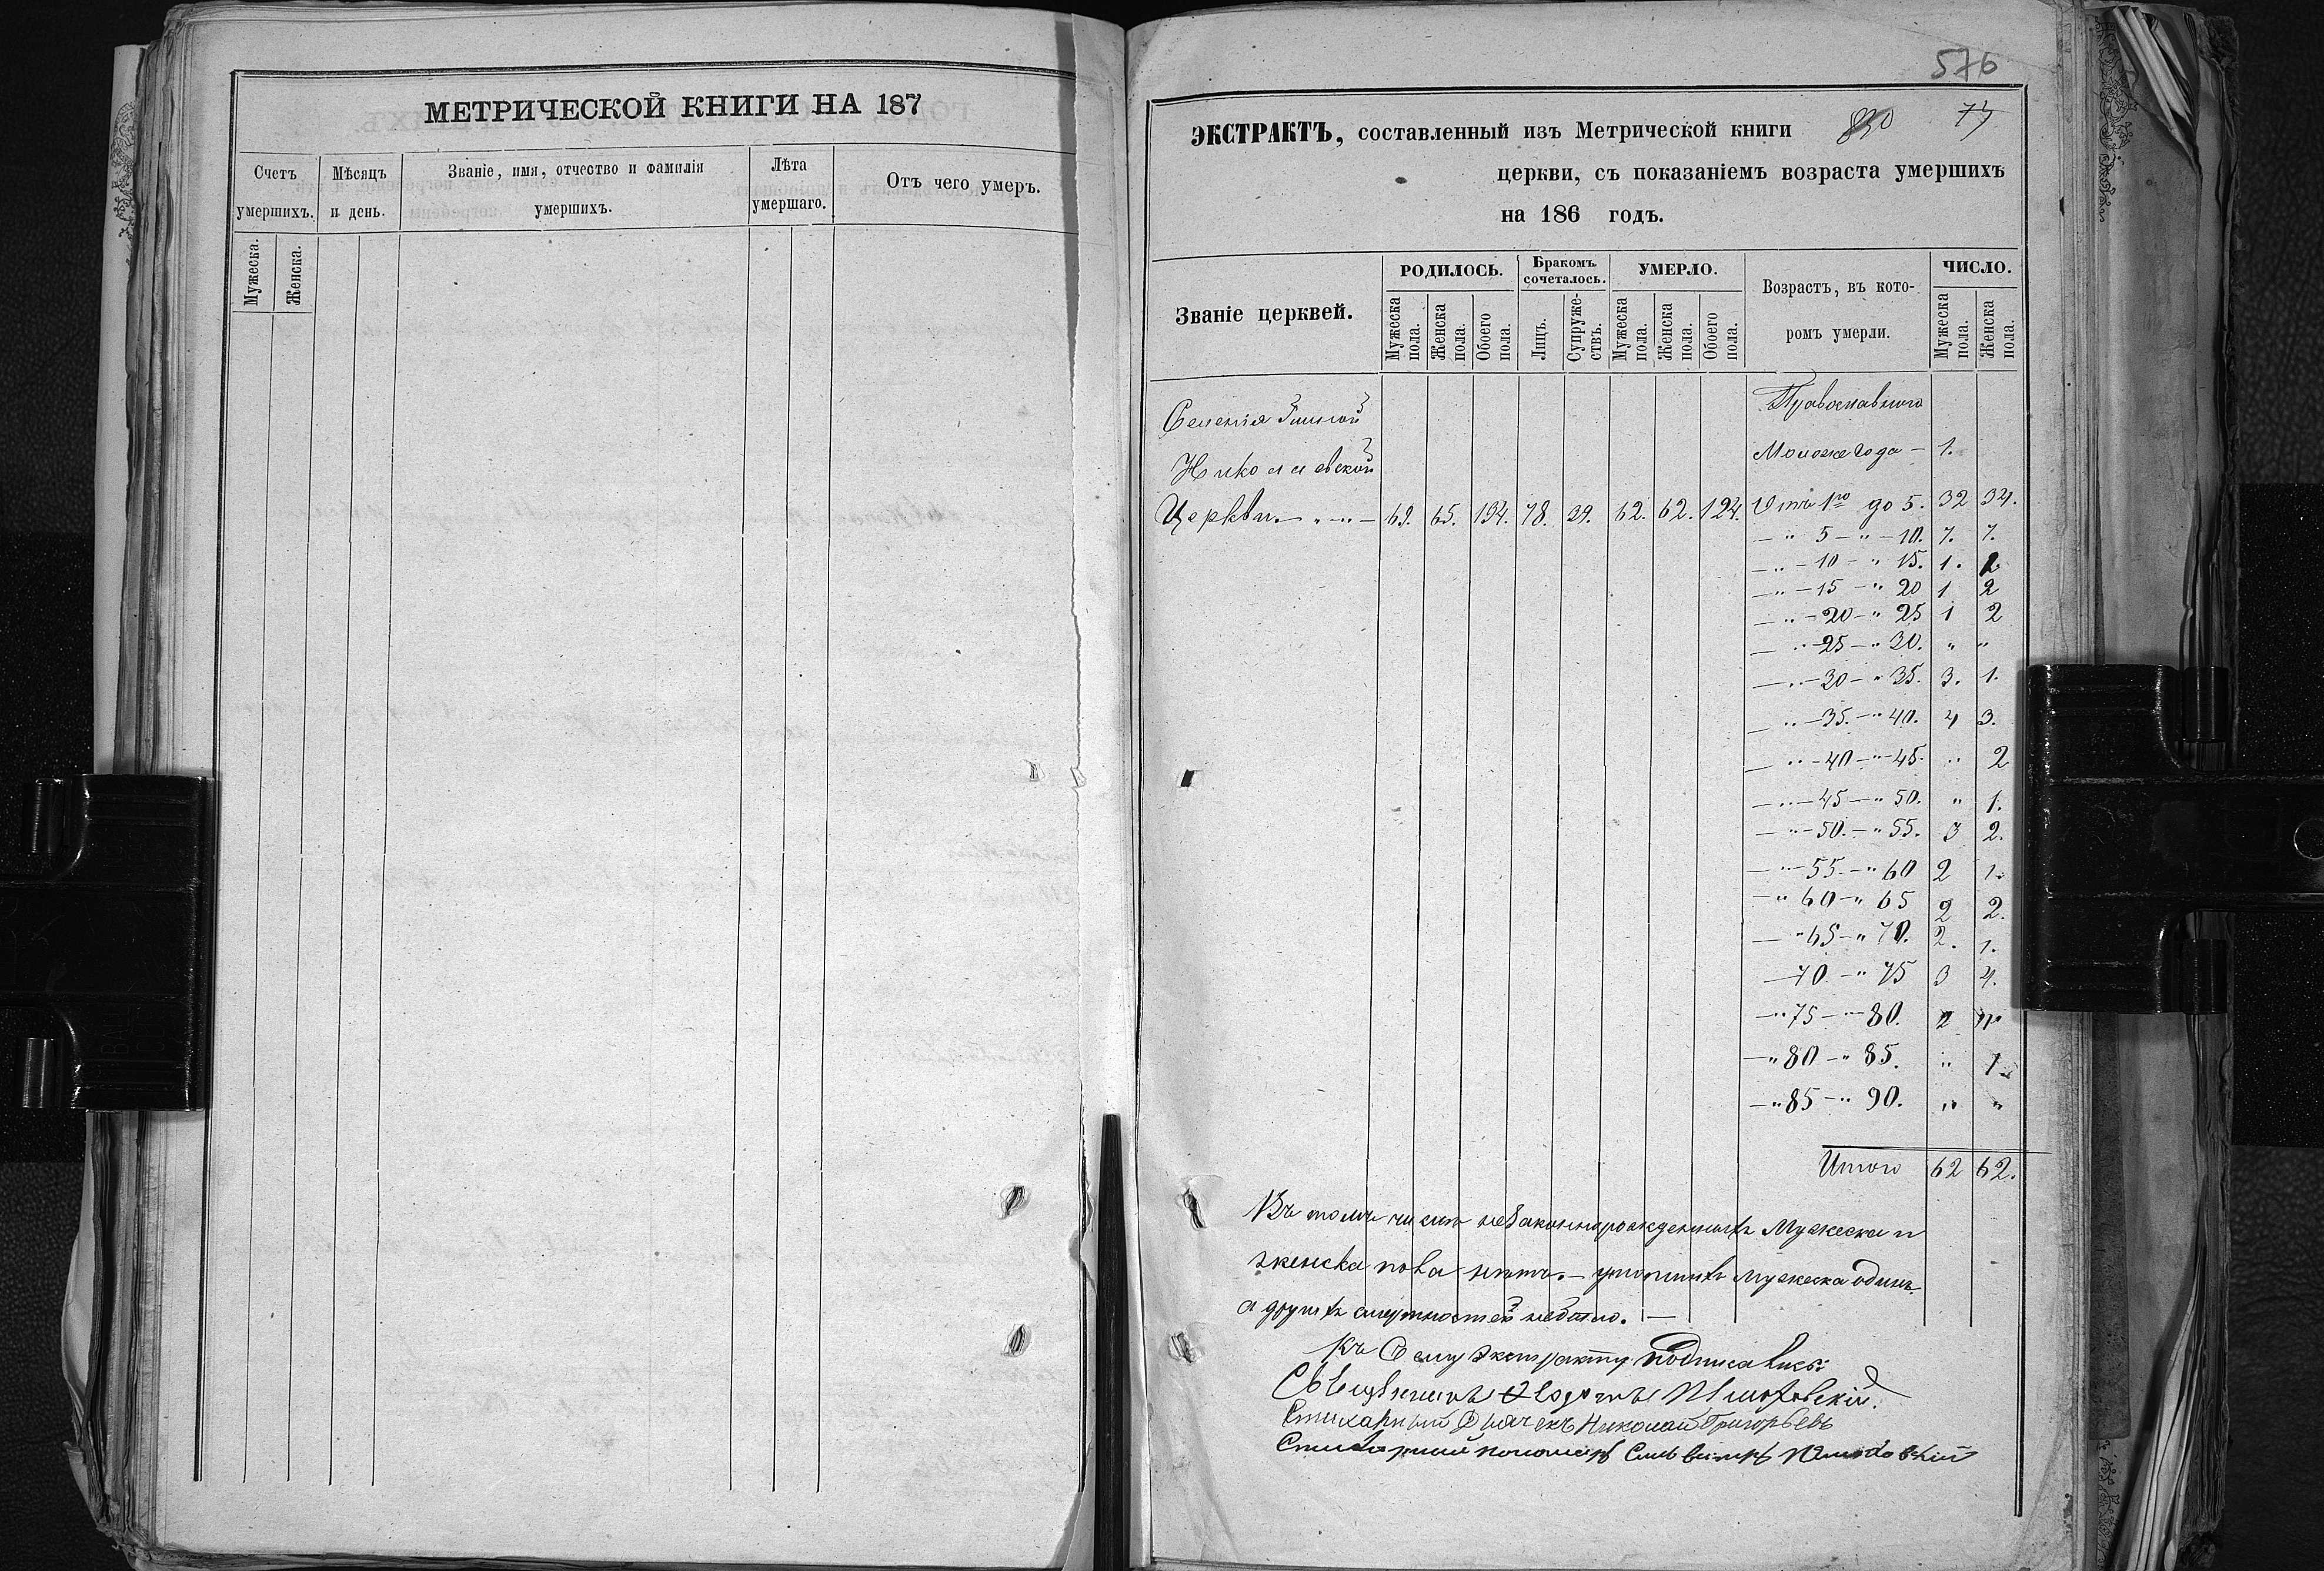 МЕТРИЧЕСКОЙ КНИГИ НА 187
Счетъ умершихъ.
Мѣсяцъ и день.
Званіе, имя, отчество и фамилія умершихъ.
Лѣта умершаго.
Отъ чего умеръ.
Мужеска.
Женска.
576
830 75
ЭКСТРАКТЪ, составленный изъ Метрической книги
церкви, съ показаніемъ возраста умершихъ
на 186 годъ.
Званіе церквей.
РОДИЛОСЬ.
Бракомъ сочеталось.
УМЕРЛО.
Возрастъ, въ которомъ умерли.
ЧИСЛО.
Мужеска пола.
Женска пола.
Обоего пола.
Лицъ.
Супружествъ.
Мужеска пола.
Женска пола.
Обоего пола.
Мужеска пола.
Женска пола.
Селенія
Православнаго
Николаевской
Моложе года – 1.
Церкви. – „ – „ – 69. 65. 134. 78. 39. 62. 62. 124. Отъ 1го до 5. 32 34.
– „ 5 – „ – 10. 7. 7.
– „ – 10 – „ 15. 1. 2
– „ – 15 – „ 20 1 2
– „ – 20 – „ 25 1 2
– „ – 25 – „ 30. „ „
– „ – 30 – „ 35. 3. 1.
– „ – 35. – „ 40. 4 3.
– „ – 40 – „ – 45. „ 2
– „ – 45 – „ 50. „ 1.
– „ – 50. – „ 55. 3 2.
– „ – 55. – „ 60 2 1.
– „ 60 – „ 65 2 2.
– „ 65 – „ 70. 2. 1.
– 70 – „ 75 3 4.
– „ 75 – „ 80.
– „ 80 – „ 85. „ 1.
– „ 85 – „ 90. „ „
Итого 62 62.
Въ томъ числѣ незаконнорожденныхъ Мужеска и
женска пола нѣтъ. – мужеска одинъ.
а другихъ смертностей небыло. –
Къ Сему экстракту подписались:
Священникъ
Стихарный Дьячекъ Николай Григорьевъ
Стихарный пономарь